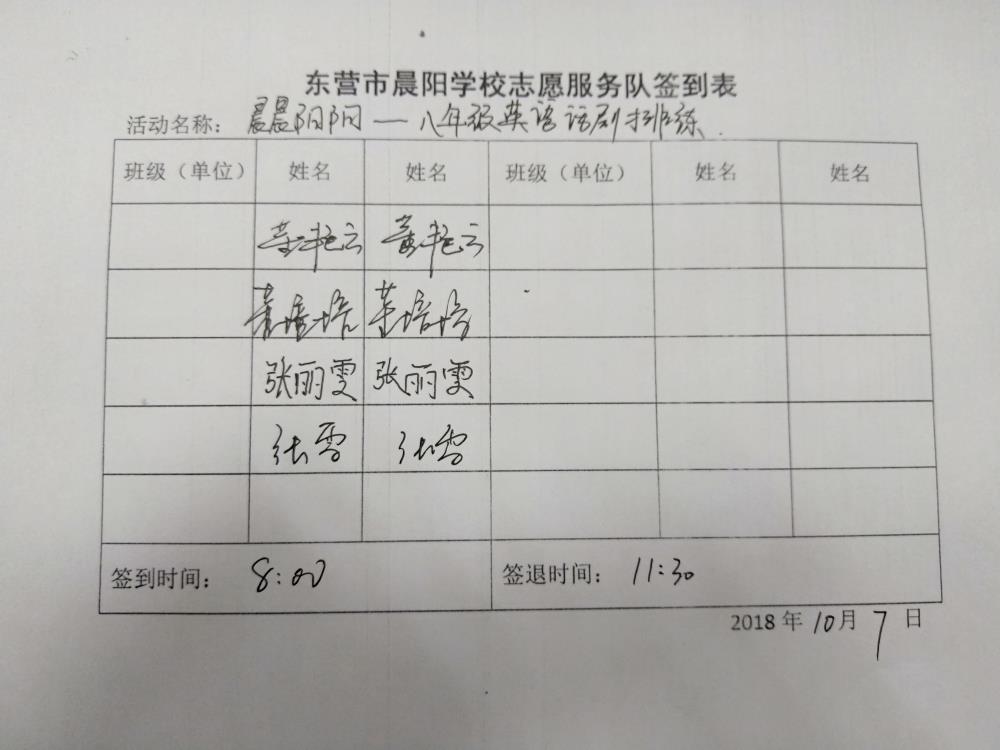 东营市晨阳学校志愿服务队签到表
活动名称：晨晨阳阳一八年级英语话剧排练.
班级（单位） 姓名 姓名 班级（单位） 姓名 姓名
董艳云 董艳云
董培培 董培培
张丽雯 张丽雯
张雪 张雪
签到时间： 8:00 签退时间： 11:30
2018年10月7日